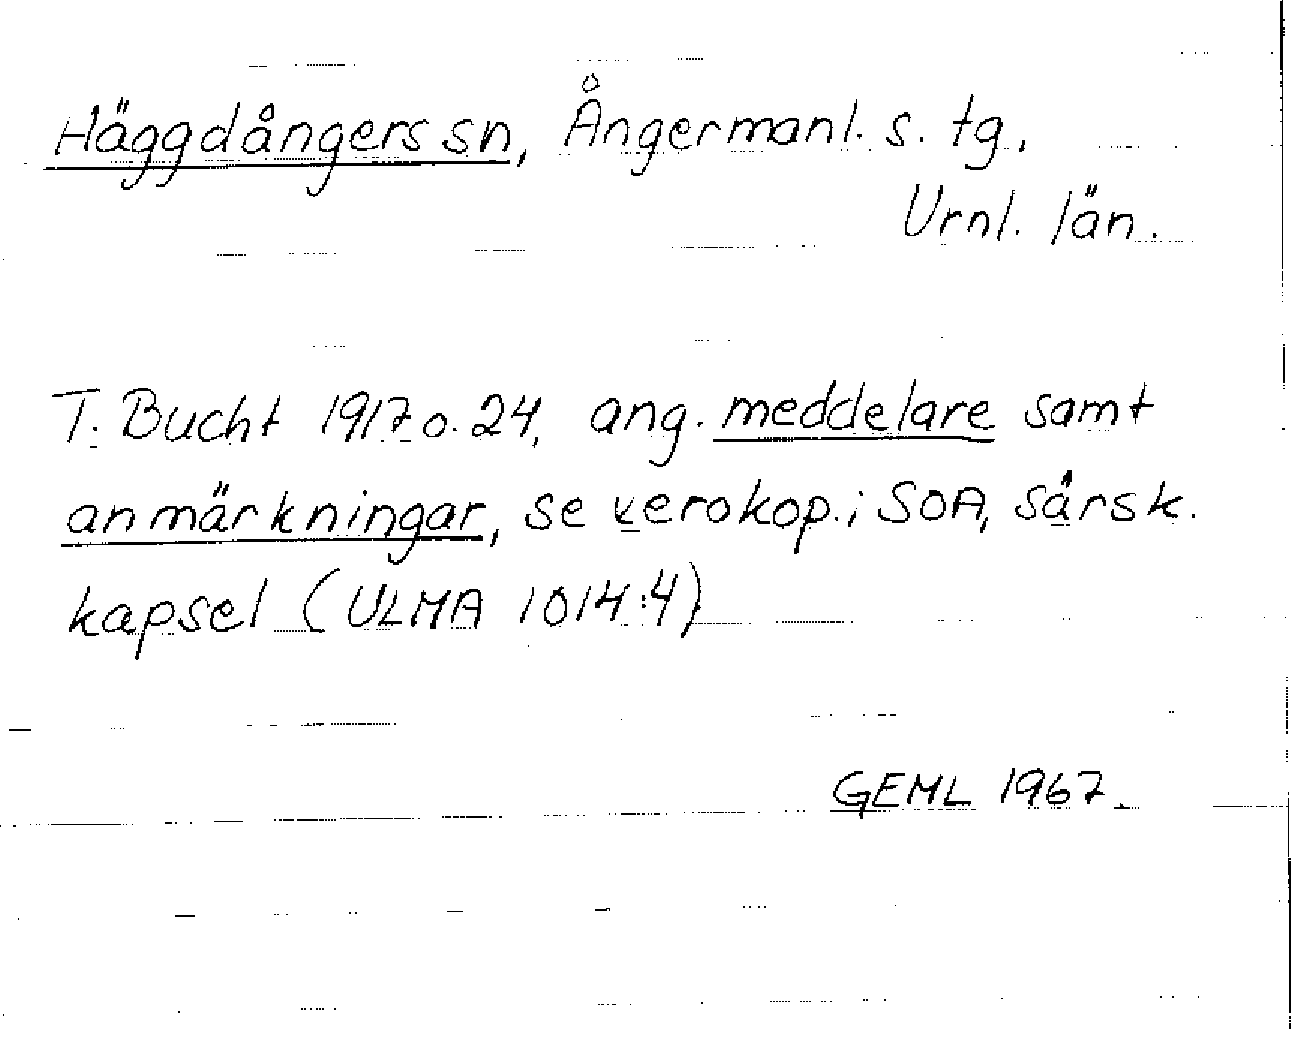 Häggdångers sn, Ångermanl. s. tg,
Vrnl. län.
T. Bucht 1917 o. 24, ang. meddelare samt
anmärkningar, se xerokop. i SOA, särsk.
kapsel (ULMA 1014:4)
GEML 1967.